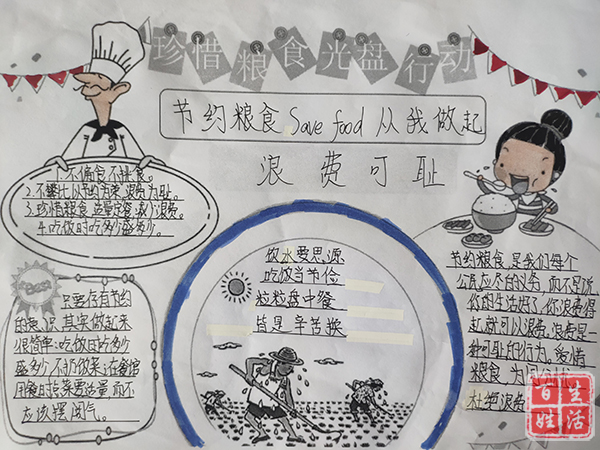 珍惜粮食光盘行动
节约粮食 Save food 从我做起
浪费可耻
1.不偏食不挑食。
2.不攀比以节约为荣浪费为耻。
3.珍惜粮食适量定餐减少浪费。
4.吃饭时吃多少盛多少。
只要存有节约
的意识其实做起来
很简单:吃饭时吃多少
盛多少,不扔饭菜;在餐馆
用餐时点菜要适量而不
应该摆阔气。
饮水要思源
吃饭当节俭
粒粒盘中餐
皆是辛苦换
节约粮食,是我们每个
公民应尽的义务,而不是说
你的生活好了你浪费得
起就可以浪费,浪费是一
种可耻的行为。爱惜
粮食,为
杜绝浪费
百姓生活